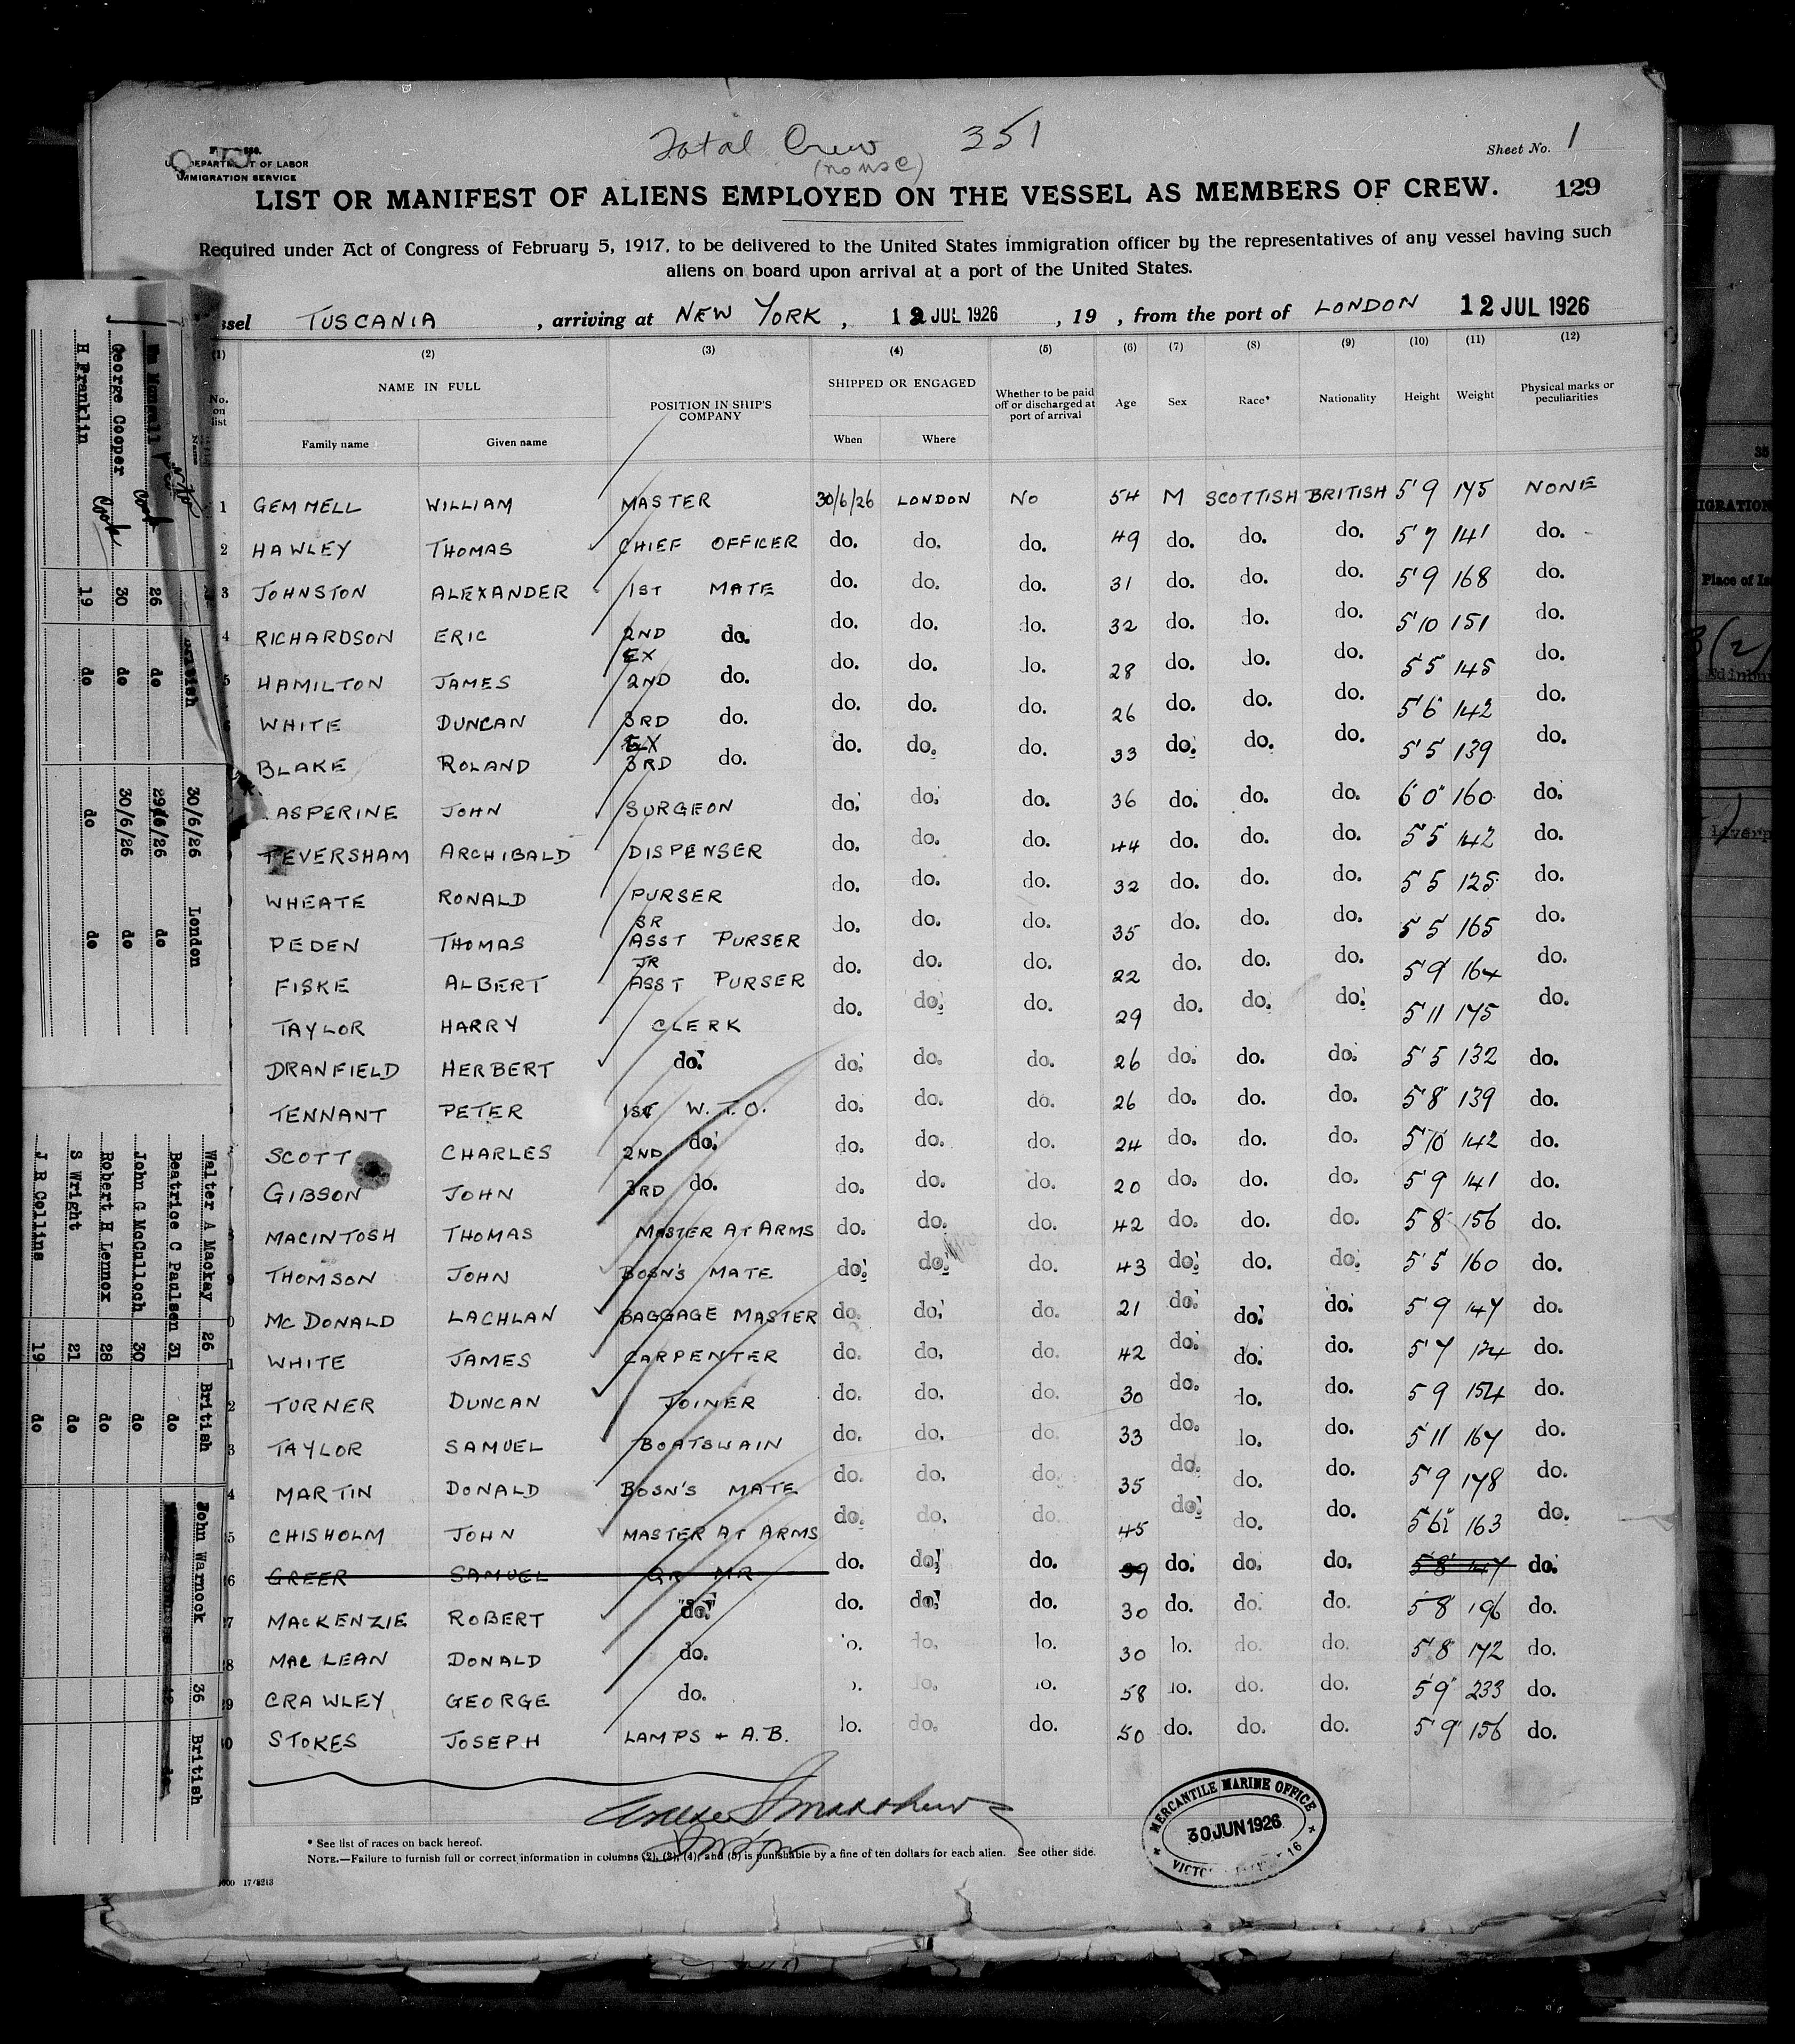 Total Crew 351
(no use)
Sheet No. 1
DEPARTMENT OF LABOR
IMMIGRATION SERVICE
LIST OR MANIFEST OF ALIENS EMPLOYED ON THE VESSEL AS MEMBERS OF CREW. 129
Required under Act of Congress of February 5, 1917, to be delivered to the United States immigration officer by the representatives of any vessel having such
aliens on board upon arrival at a port of the United States.
ssel TUSCANIA , arriving at NEW YORK , 12 JUL 1926 , 19 , from the port of LONDON 12 JUL 1926
(1) (2) (3) (4) (5) (6) (7) (8) (9) (10) (11) (12)
No. on list NAME IN FULL POSITION IN SHIP'S COMPANY SHIPPED OR ENGAGED Whether to be paid off or discharged at port of arrival Age Sex Race* Nationality Height Weight Physical marks or peculiarities
Family name Given name When Where
1 GEMMELL WILLIAM MASTER 30/6/26 LONDON NO 54 M SCOTTISH BRITISH 5'9 175 NONE
2 HAWLEY THOMAS CHIEF OFFICER do. do. do. 49 do. do. do. 5'7 141 do.
3 JOHNSTON ALEXANDER 1ST MATE do. do. do. 31 do. do. do. 5'9 168 do.
4 RICHARDSON ERIC 2ND do. do. do. do. 32 do. do. do. 5'10 151 do.
5 HAMILTON JAMES EX 2ND do. do. do. do. 28 do. do. do. 5'5" 145 do.
WHITE DUNCAN 3RD do. do. do. do. 26 do. do. do. 5'6" 142 do.
BLAKE ROLAND EX 3RD do. do. do. do. 33 do. do. do. 5'5 139 do.
ASPERINE JOHN SURGEON do. do. do. 36 do. do. do. 6'0" 160 do.
FEVERSHAM ARCHIBALD DISPENSER do. do. do. 44 do. do. do. 5'5" 142 do.
WHEATE RONALD PURSER do. do. do. 32 do. do. do. 5'5 125 do.
PEDEN THOMAS SR ASST PURSER do. do. do. 35 do. do. do. 5'5 165 do.
FISKE ALBERT JR ASST PURSER do. do. do. 22 do. do. do. 5'9" 164 do.
TAYLOR HARRY CLERK do. do. do. 29 do. do. do. 5'11 175 do.
DRANFIELD HERBERT do. do. do. do. 26 do. do. do. 5'5 132 do.
TENNANT PETER 1ST W.T.O. do. do. do. 26 do. do. do. 5'8" 139 do.
SCOTT CHARLES 2ND do. do. do. do. 24 do. do. do. 5'10" 142 do.
GIBSON JOHN 3RD do. do. do. do. 20 do. do. do. 5'9 141 do.
MACINTOSH THOMAS MASTER AT ARMS do. do. do. 42 do. do. do. 5'8" 156 do.
THOMSON JOHN BOSN'S MATE do. do. do. 43 do. do. do. 5'5" 160 do.
MCDONALD LACHLAN BAGGAGE MASTER do. do. do. 21 do. do. do. 5'9 147 do.
WHITE JAMES CARPENTER do. do. do. 42 do. do. do. 5'7 do.
TURNER DUNCAN JOINER do. do. do. 30 do. do. do. 5'9 154 do.
TAYLOR SAMUEL BOATSWAIN do. do. do. 33 do. do. do. 5'11 167 do.
MARTIN DONALD BOSN'S MATE do. do. do. 35 do. do. do. 5'9 178 do.
CHISHOLM JOHN MASTER AT ARMS do. do. do. 45 do. do. do. 5'6½ 163 do.
GREER SAMUEL QR MR do. do. do. 39 do. do. do. 5'8" 147 do.
MACKENZIE ROBERT do. do. do. do. 30 do. do. do. 5'8 196 do.
MACLEAN DONALD do. do. do. do. 30 do. do. do. 5'8" 172 do.
CRAWLEY GEORGE do. do. do. do. 58 do. do. do. 5'9" 233 do.
STOKES JOSEPH LAMPS & A.B. do. do. do. 50 do. do. do. 5'9" 156 do.
* See list of races on back hereof.
NOTE.—Failure to furnish full or correct information in columns (2), (3), (4), and (5) is punishable by a fine of ten dollars for each alien. See other side.
MERCANTILE MARINE OFFICE
30 JUN 1926
George Cooper Cook 30 do 30/6/26 do
H Franklin Cook 19 do do do
30/6/26 London
26 do 29/6/26 do
Walter A Mackay 26 British
Beatrice C Paulsen 31 do
John G McCulloch 30 do
Robert H Lennox 28 do
S Wright 21 do
J R Collins 19 do
John Warnock 36 British
IGRATION
Place of Is
Edinbu
Liverp